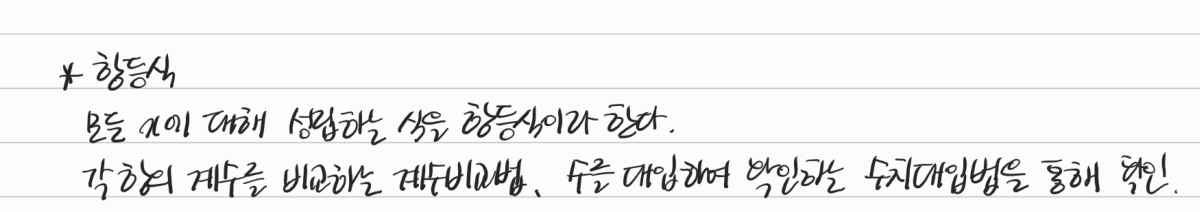 * 항등식
모든 x에 대해 성립하는 식을 항등식이라 한다.
각 항의 계수를 비교하는 계수비교법, 수를 대입하여 확인하는 수치대입법을 통해 확인.